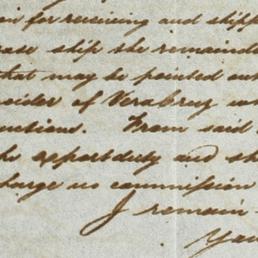 for receiving and shipp
ease ship the remaind
that may be pointed out
sider of Veracruz
uctions. From said
the opportduty and sh
charge no commission
I remain
You